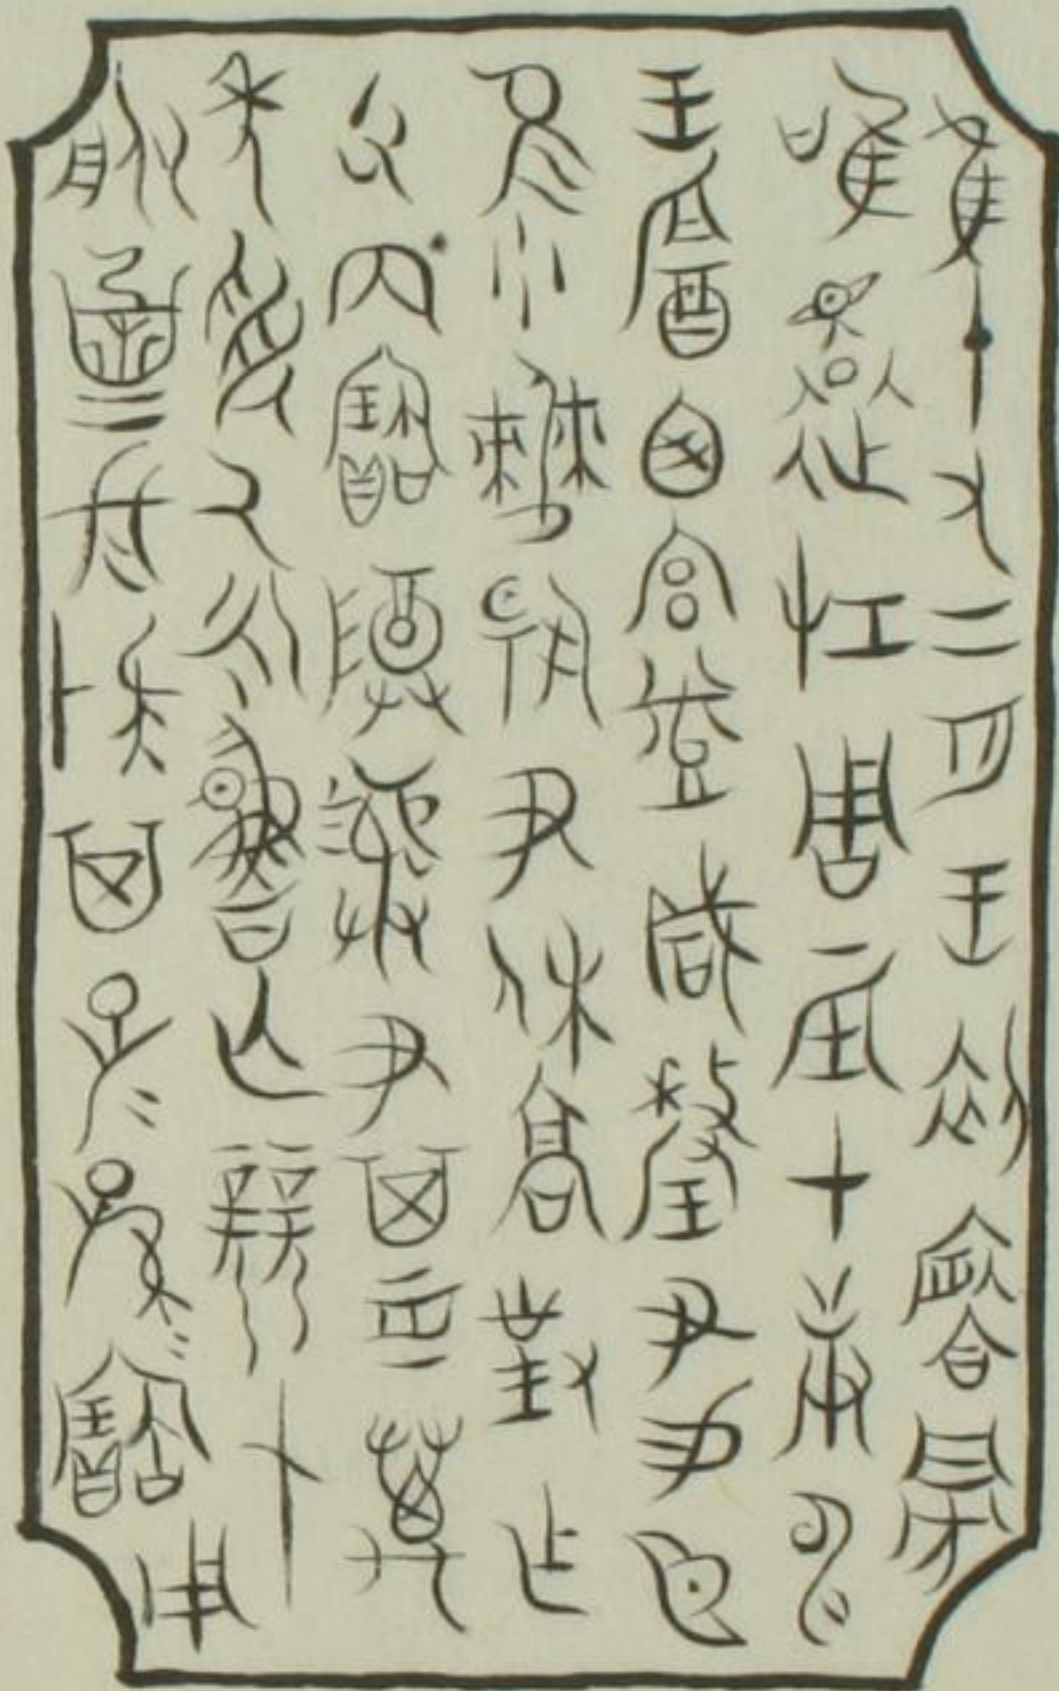 隹十又二月王初饔旁
唯還在周辰在庚申
王飲西宮烝咸釐尹易臣
隹小僰揚尹休高對乍
父丙寶尊彝尹其亘萬
年受氒永魯亡競在
服長疑其子子孫孫寶用